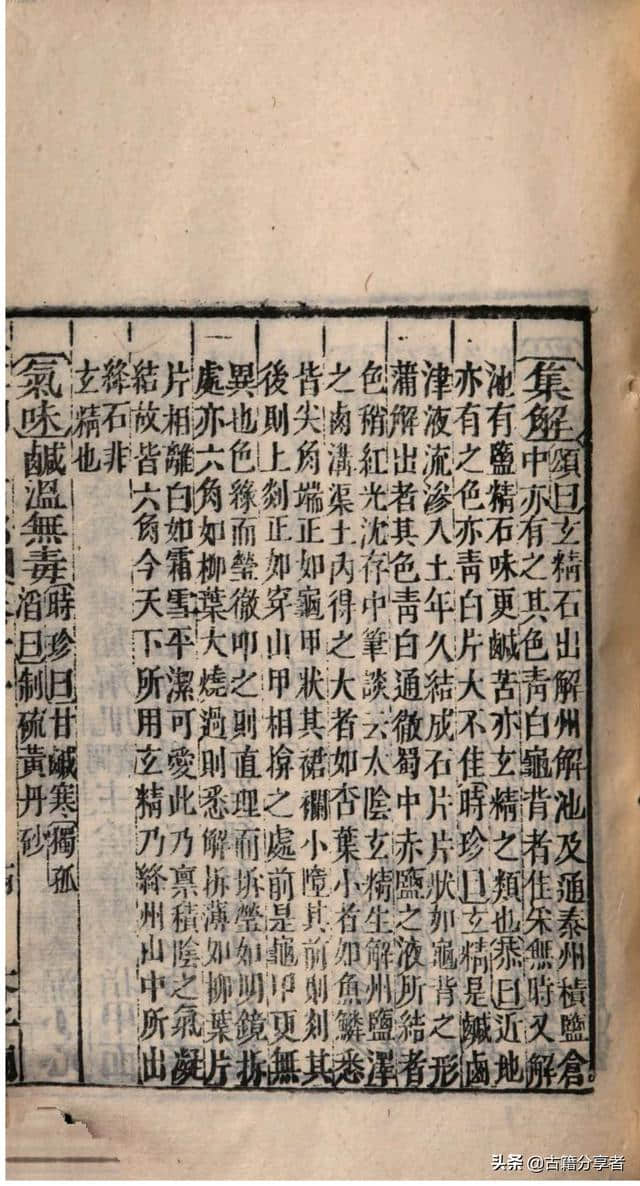 集解頌曰玄精石出解州解池及通泰州積鹽倉
中亦有之其色青白龜背者佳采無時又解
池有鹽精石味更鹹苦亦玄精之類也恭曰近地
亦有之色亦青白片大不佳時珍曰玄精是鹹鹵
津液流滲入土年久結成石片片狀如龜背之形
蒲解出者其色青白通徹蜀中赤鹽之液所結者
色稍紅光沈存中筆談云太陰玄精生解州鹽澤
之鹵溝渠土內得之大者如杏葉小者如魚鱗悉
皆尖角端正如龜甲狀其裙襴小墮其前則剡其
後則上剡正如穿山甲相揜之處前是龜甲更無
異也色綠而瑩徹叩之則直理而拆瑩如明鏡拆
處亦六角如柳葉大燒過則悉解拆薄如柳葉片
片相離白如霜雪平潔可愛此乃稟積陰之氣凝
結故皆六角今天下所用玄精乃絳州山中所出
絳石非
玄精也
氣味鹹溫無毒時珍曰甘鹹寒獨孤
滔曰制硫黃丹砂
头条@古籍分享者